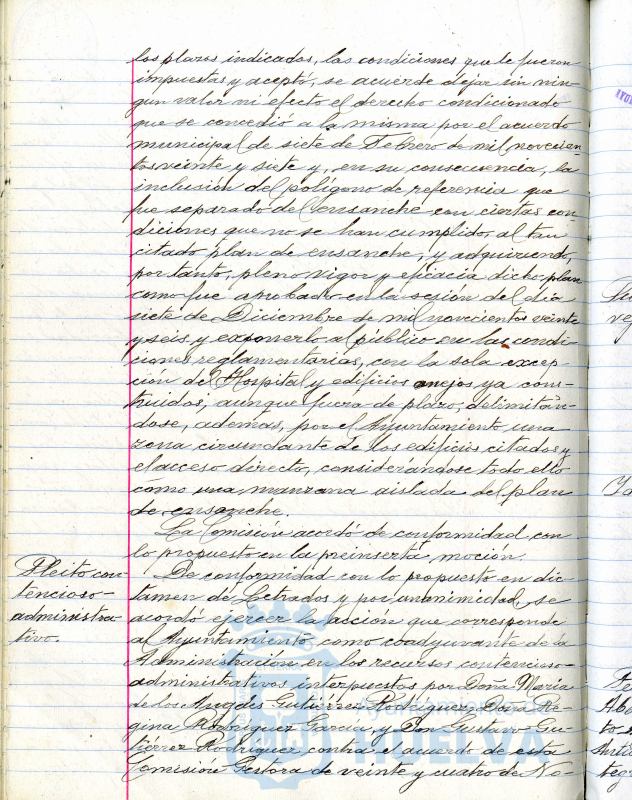 los plazos indicados, las condiciones que le fueron
impuestas y aceptó, se acuerde dejar sin nin-
gun valor ni efecto el derecho condicionado
que se concedió a la misma por el acuerdo
municipal de siete de Febrero de mil novecien-
tos veinte y siete y, en su consecuencia, la
inclusión del polígono de referencia que
fue separado del ensanche con ciertas con
diciones que no se han cumplido, al tan
citado plan de ensanche, y adquiriendo,
por tanto, pleno vigor y eficacia dicho plan
como fue aprobado en la sesión del dia
siete de Diciembre de mil novecientos veinte
y seis y exponerlo al público en las condi-
ciones reglamentarias, con la sola excep-
ción del Hospital y edificios anejos ya cons-
truidos, aunque fuera de plazo, delimitán-
dose, además, por el Ayuntamiento una
zona circundante de los edificios citados y
el acceso directo, considerandose todo ello
como una manzana aislada del plan
de ensanche.
La Comisión acordó de conformidad con
lo propuesto en la preinserta moción.
Pleito con
tencioso-
administra
tivo.
De conformidad con lo propuesto en dic-
tamen de Letrados y por unanimidad, se
acordó ejercer la acción que corresponde
al Ayuntamiento como coadyuvante de la
Administración en los recursos contencioso-
administrativos interpuestos por Doña Maria
de los Angeles Gutiérrez Rodriguez, Doña Re-
gina Rodriguez Garcia, y Don Gustavo Gu-
tiérrez Rodriguez contra el acuerdo de esta
Comisión Gestora de veinte y cuatro de No-
HUELVA